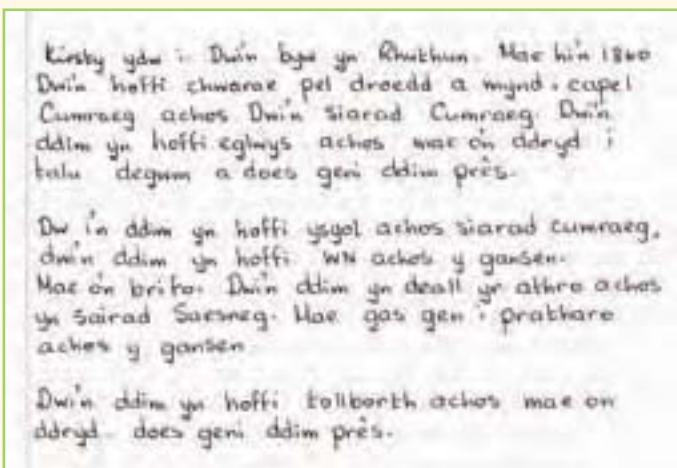 Kirsby ydw i. Dwi'n byw yn Rhuthun. Mae hi'n 1840
Dwi'n hoffi chwarae pel droedd a mynd i capel
Cumraeg achos Dwi'n siarad Cumraeg. Dwi'n
ddim yn hoffi eglwys achos mae o'n ddryd i
talu degum a does geni ddim pres.
Dw i'n ddim yn hoffi ysgol achos siarad cumraeg,
dwi'n ddim yn hoffi WN achos y gansen.
Mae o'n brifo. Dwi'n ddim yn deall yr athro achos
yn sairad Saesneg. Mae gas gen i
achos y gansen
Dwi'n ddim yn hoffi tollborth achos mae on
ddryd. does geni ddim pres.